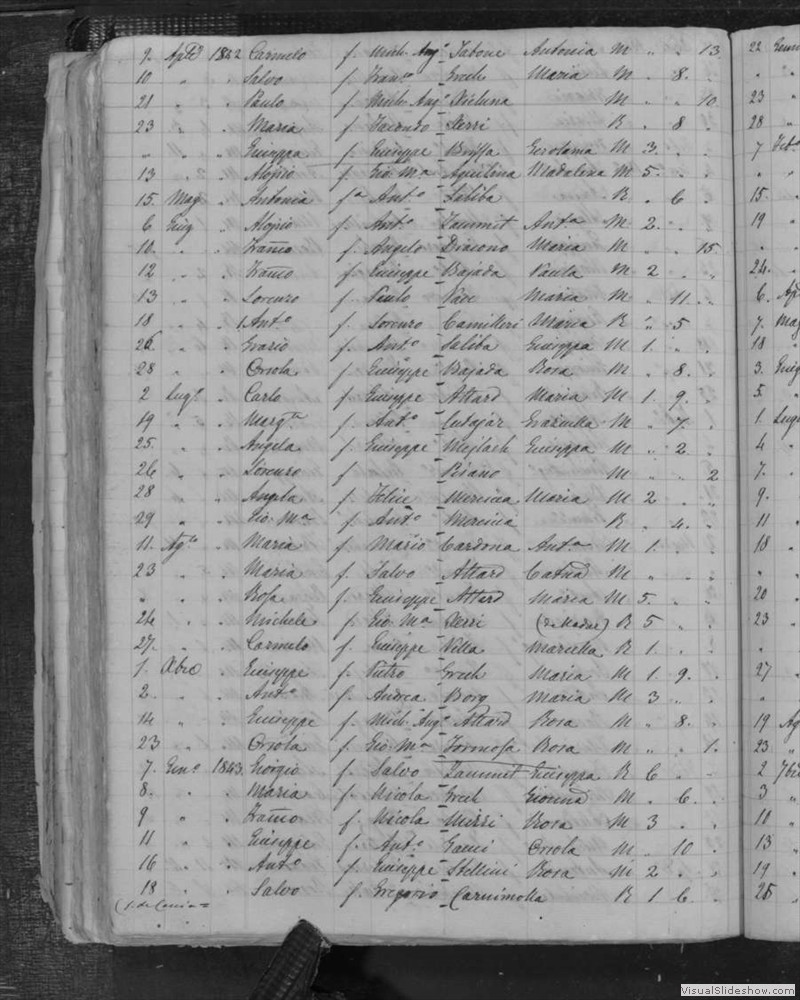 9. 1842 Carmelo f. Mich. Ang.º Tabone Antonia M " . 13
10 " . Salvo f. Fran.co Grech Maria M . 8. .
21 " . Paulo f. Mich. Ang.º M . . 10
23 " . Maria f. Ferri R . 8 .
" " . Giuseppa f. Giuseppe Gerolama M 3. . .
13 " . Aloisio f. Gio. M.a Aquilina Madalena M 5. . .
15. Mag. . Antonia f.a Ant.º Saliba R . 6 .
6 Giug . Aloisio f. Ant.º Zammit Ant.a M 2. . .
10. " . f. Angelo Diacono Maria M . . 15.
12 " . f. Giuseppe Bajada Paula M 2 . .
13 " . Lorenzo f. Paulo Pace Maria M . 11. .
18 " . Ant.º f. Lorenzo Camilleri Maria R " 5 .
26. " . Grazio f. Ant.º Saliba Giuseppa M 1. . .
28 " . Orsola f. Giuseppe Bajada Rosa M . 8. .
2 Lug.º . Carlo f. Giuseppe Attard Maria M 1. 9. .
19 " . Marg.ta f. Ant.º Cutajar M . 7. .
25. " . Angela f. Giuseppe Mejlach Giuseppa M " 2. .
26 " . Lorenzo f. Pisano M " " 2
28 " . Angela f. Felice Mercieca Maria M 2 . .
29 " . Gio. M.a f. Ant.º Mercieca R . 4. .
11. Ag.to . Maria f. Mario Cardona Ant.a M 1. . .
23 " . Maria f. Salvo Attard M " . .
" " . Rosa f. Giuseppe Attard Maria M 5. . .
24 " . Michele f. Gio. M.a Ferri (de Madre) R 5 . .
27. " . Carmelo f. Giuseppe Vella Marcella R 1. . .
1. Xbre . Giuseppe f. Pietro Grech Maria M 1 9. .
2. " . Ant.º f. Andrea Borg Maria M 3 " .
14 " . Giuseppe f. Mich. Ang.º Attard Rosa M " 8. .
23 " . Orsola f. Gio. M.a Formosa Rosa M " " 1.
7. Gen.º 1843. Giorgio f. Salvo Zammit Giuseppa R 6 . .
8. " . Maria f. Nicola Grech M . 6. .
9 " . f. Nicola Rosa M 3 . .
11 " . Giuseppe f. Ant.º Gauci Orsola M . 10 .
16 " . Ant.º f. Giuseppe Stellini Rosa M 2 . .
18 " . Salvo f. Gregorio Carnimolla R 1 6. .
22
"
23
28
7
"
15.
19
"
24.
6.
7. Mag
18
3. Giug
5.
1. Lugl
4
7.
9.
11
18
"
20
23
27
"
19 Ag
23
2 7bre
3
11
13
19
25
VisualSlideshow.com